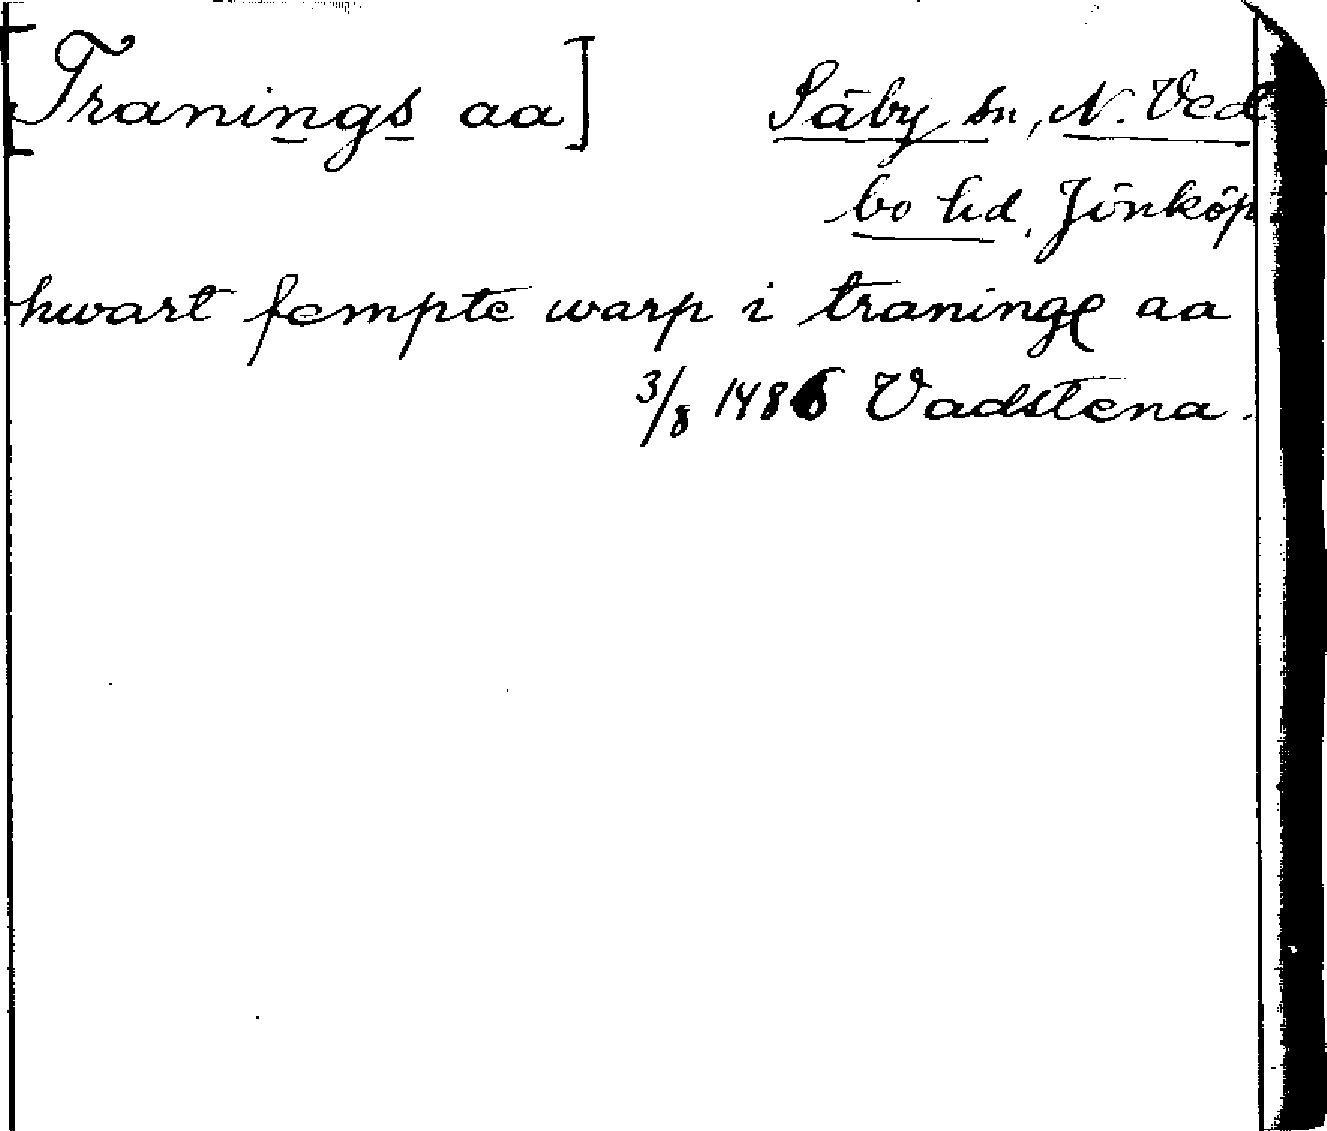 [Tranings aa]
Säby sn, N. Ved
bo hd. Jönköp.
hwart fempte warp i traninge aa
3/8 1486 Vadstena.